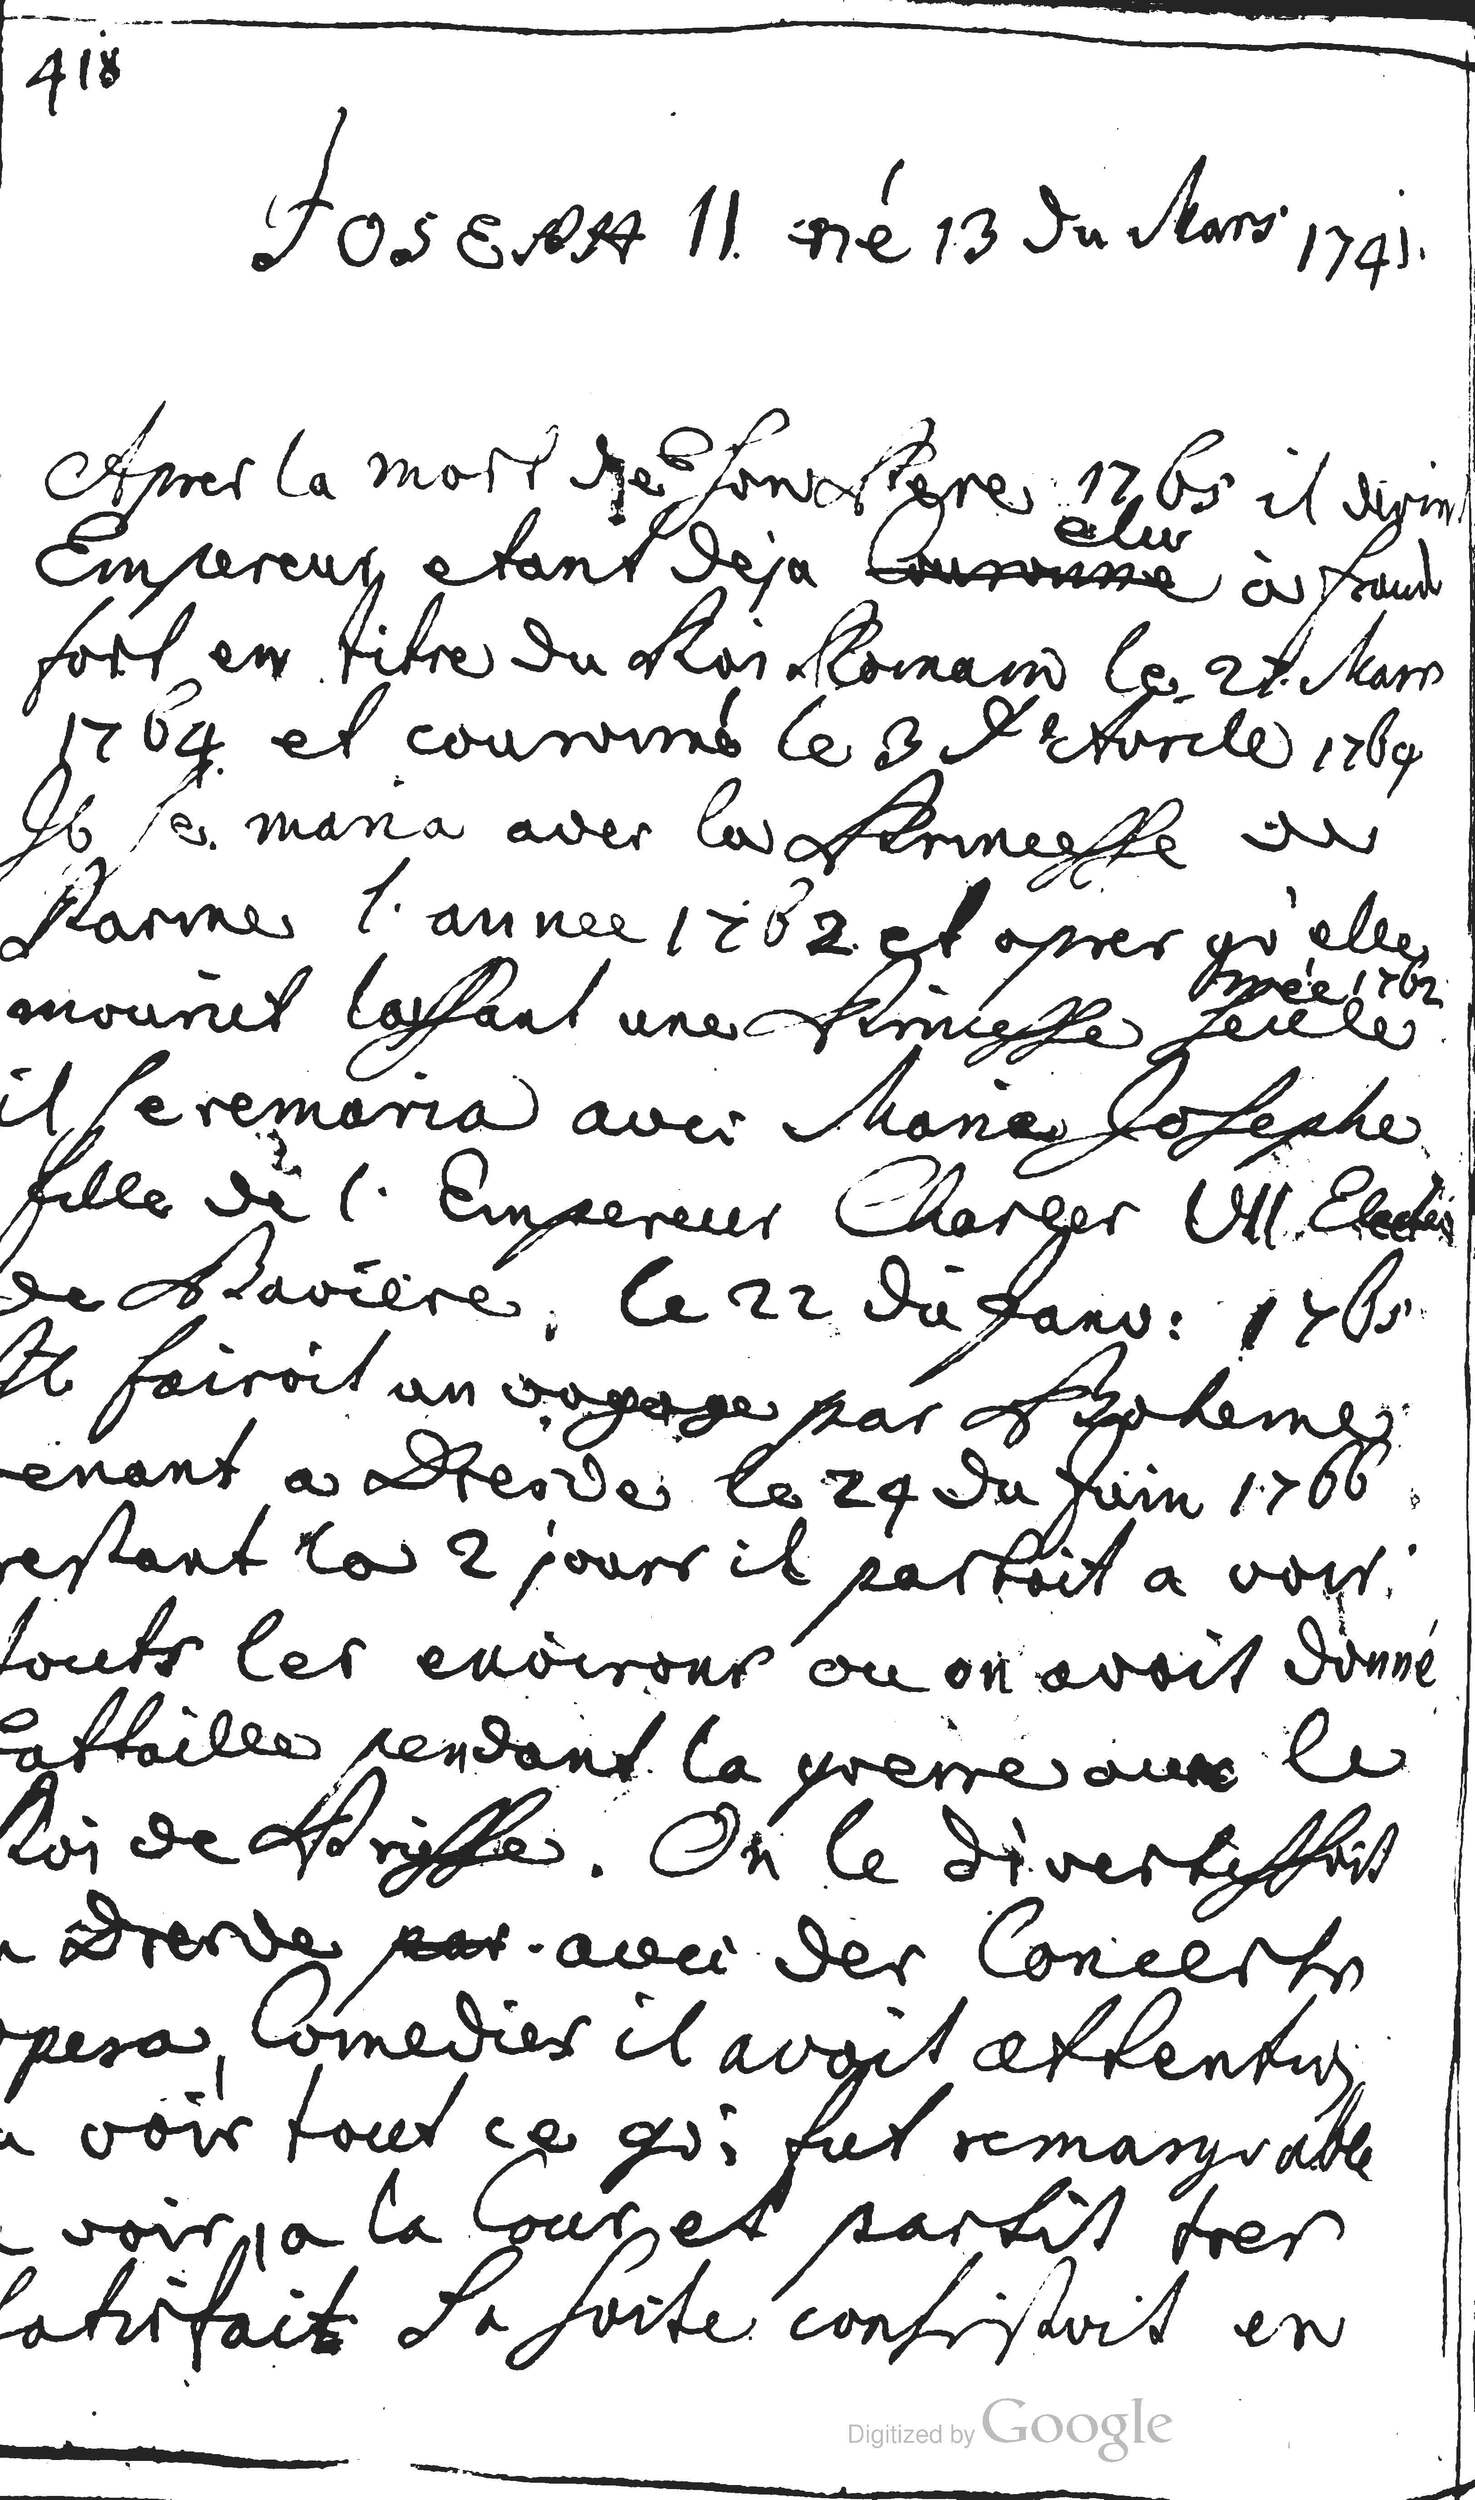 418
JOSEPH II. né 13 du Mars 1741.
Apres la mort de son Pere 1765 il devint
elu
Empereur etant deja Couronne à Franc
fort en titre du Roi Romain le 27. Mars
1764. et couronné le 3 d'Avrile 1764
Il se maria avec la Princesse de
Parme l'annee 1762. et apres qu'elle
née 1762
mourut laissant une Princesse seule
il se remaria avec Marie Josephe
fille de l'Empereur Charles VII. Elect
de Baviere, le 22 du Janv: 1765
Il fairoit un voyage par Boheme
venant a Dresde le 24 du Juin 1766.
restant la 2 jours il partoit a voir
touts les environs ou on avoit donné
battaille pendant la guerre avec le
Roi de Prusse. On le divertissoit
a Dresde par avec des Concerts
opera, Comedies il avoit attentus
a voir tout ce qui fut remarquable
a voir, a la Cour et partit tres
satisfait La suite consistoit en
Digitized by Google